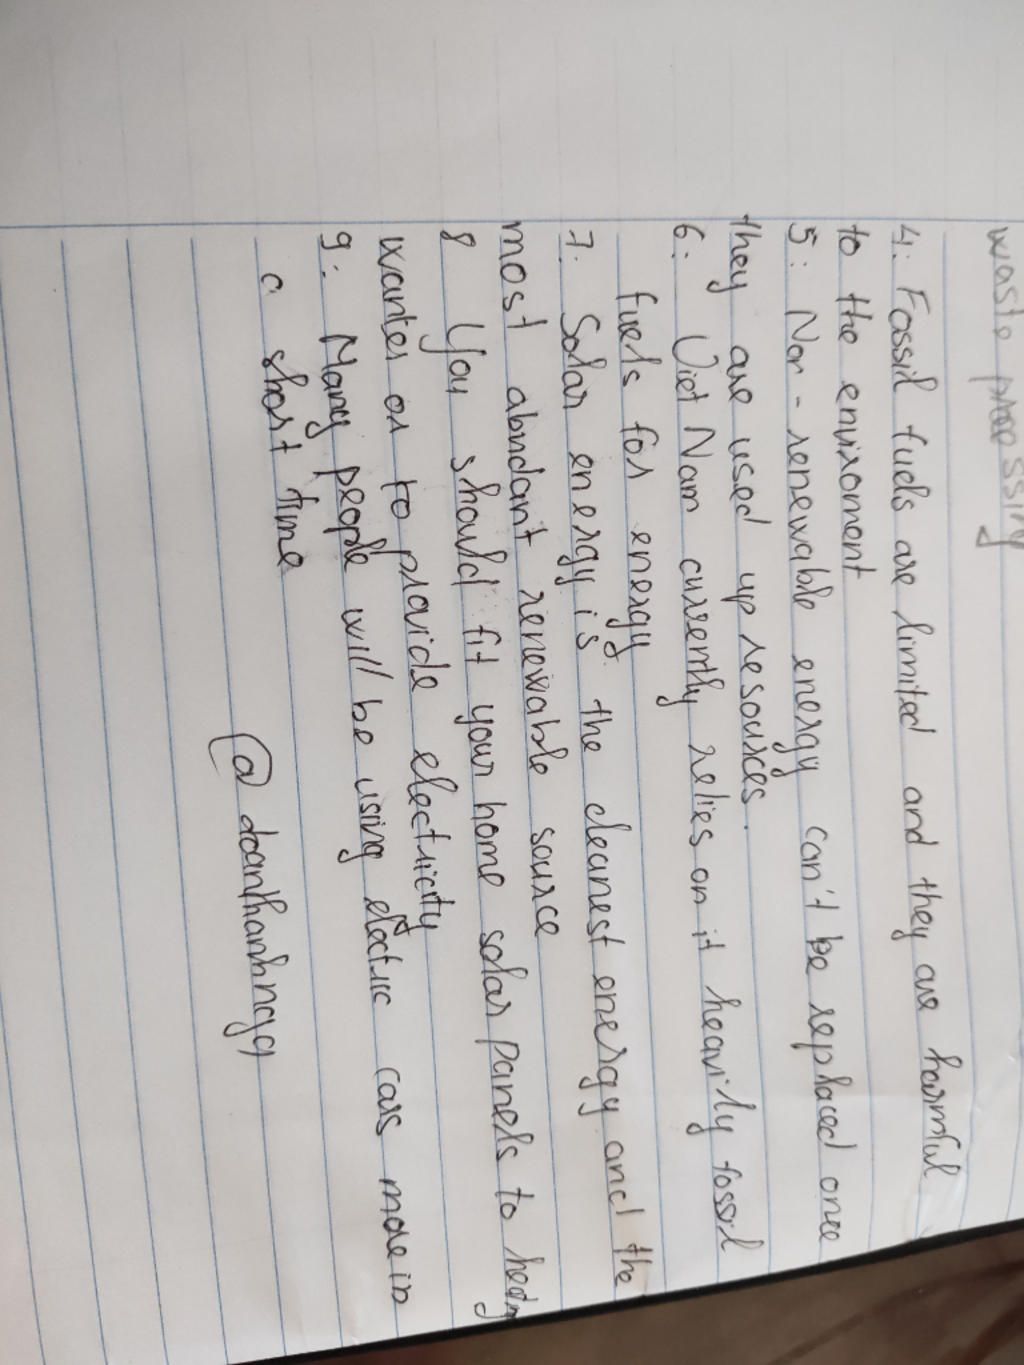 waste processing
4. Fossil fuels are limited and they are harmful
to the enviroment
5: Non-renewable energy can't be replaced once
they are used up resources.
6. Viet Nam currently relies on it heavily fossil
fuels for energy
7. Solar energy is the cleanest energy and the
most abudant renewable source
8 You should fit your home solar panels to
wanter or to provide electricity
9: Many people will be using electric cars more in
a short time
@doanthanhngq